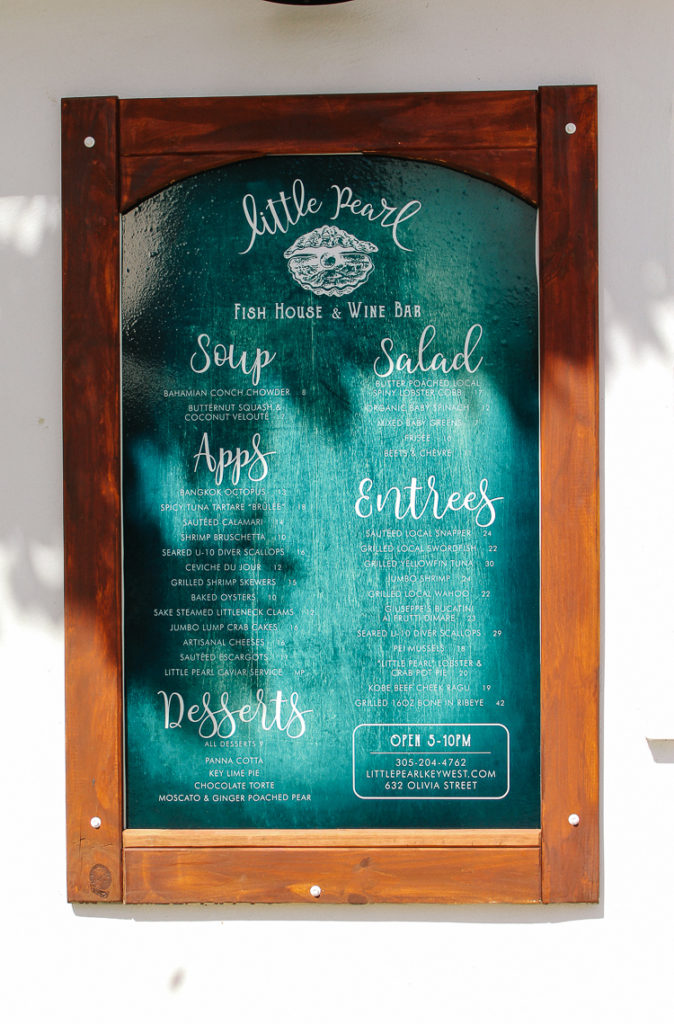 little Pearl
FISH HOUSE & WINE BAR
Soup
BAHAMIAN CONCH CHOWDER 8
BUTTERNUT SQUASH &
COCONUT VELOUTÉ
Apps
BANGKOK OCTOPUS 13
SPICY TUNA TARTARE "BRÛLÉE" 18
SAUTÉED CALAMARI 14
SHRIMP BRUSCHETTA 10
SEARED U-10 DIVER SCALLOPS 16
CEVICHE DU JOUR 12
GRILLED SHRIMP SKEWERS 16
BAKED OYSTERS 10
SAKE STEAMED LITTLENECK CLAMS 12
JUMBO LUMP CRAB CAKES
ARTISANAL CHEESES 16
SAUTÉED ESCARGOTS
LITTLE PEARL CAVIAR SERVICE MP
Desserts
ALL DESSERTS 9
PANNA COTTA
KEY LIME PIE
CHOCOLATE TORTE
MOSCATO & GINGER POACHED PEAR
Salad
BUTTER POACHED LOCAL
SPINY LOBSTER COBB 17
ORGANIC BABY SPINACH 12
MIXED BABY GREENS
FRISÉE
BEETS & CHÈVRE
Entrees
SAUTÉED LOCAL SNAPPER 24
GRILLED LOCAL SWORDFISH 22
GRILLED YELLOWFIN TUNA 30
JUMBO SHRIMP 24
GRILLED LOCAL WAHOO 22
GIUSEPPE'S BUCATINI
AI FRUTTI DIMARE 23
SEARED U-10 DIVER SCALLOPS 29
PEI MUSSELS 18
"LITTLE PEARL" LOBSTER &
CRAB POT PIE 20
KOBE BEEF CHEEK RAGU 19
GRILLED 16OZ BONE IN RIBEYE 42
OPEN 5-10PM
305-204-4762
LITTLEPEARLKEYWEST.COM
632 OLIVIA STREET